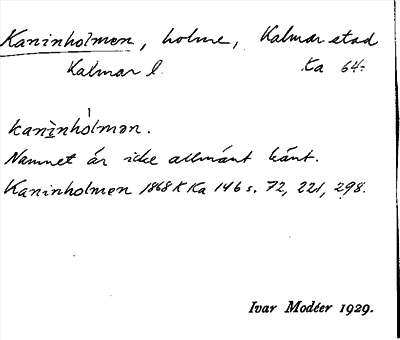 Kaninholmen, holme, Kalmar stad
Kalmar l. Ka 64:
kanìnhòlmən.
Namnet är icke allmänt känt.
Kaninholmen 1868 K Ka 146 s. 72, 221, 298.
Ivar Modéer 1929.